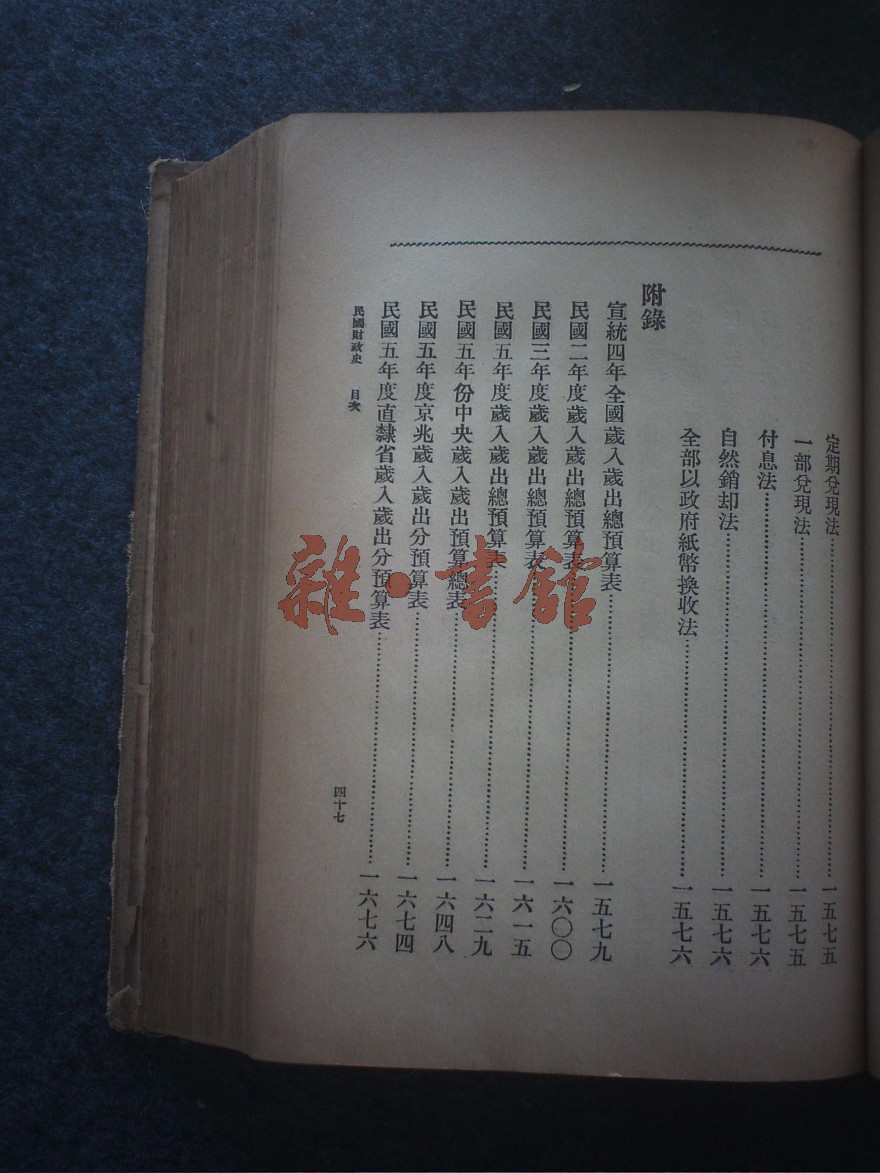 定期兌現法……一五七五
一部兌現法……一五七五
付息法……一五七六
自然銷却法……一五七六
全部以政府紙幣換收法……一五七六
附錄
宣統四年全國歲入歲出總預算表……一五七九
民國二年度歲入歲出總預算表……一六〇〇
民國三年度歲入歲出總預算表……一六一五
民國五年度歲入歲出總預算表……一六二九
民國五年份中央歲入歲出預算總表……一六四八
民國五年度京兆歲入歲出分預算表……一六七四
民國五年度直隸省歲入歲出分預算表……一六七六
民國財政史 目次
四十七
雜·書館